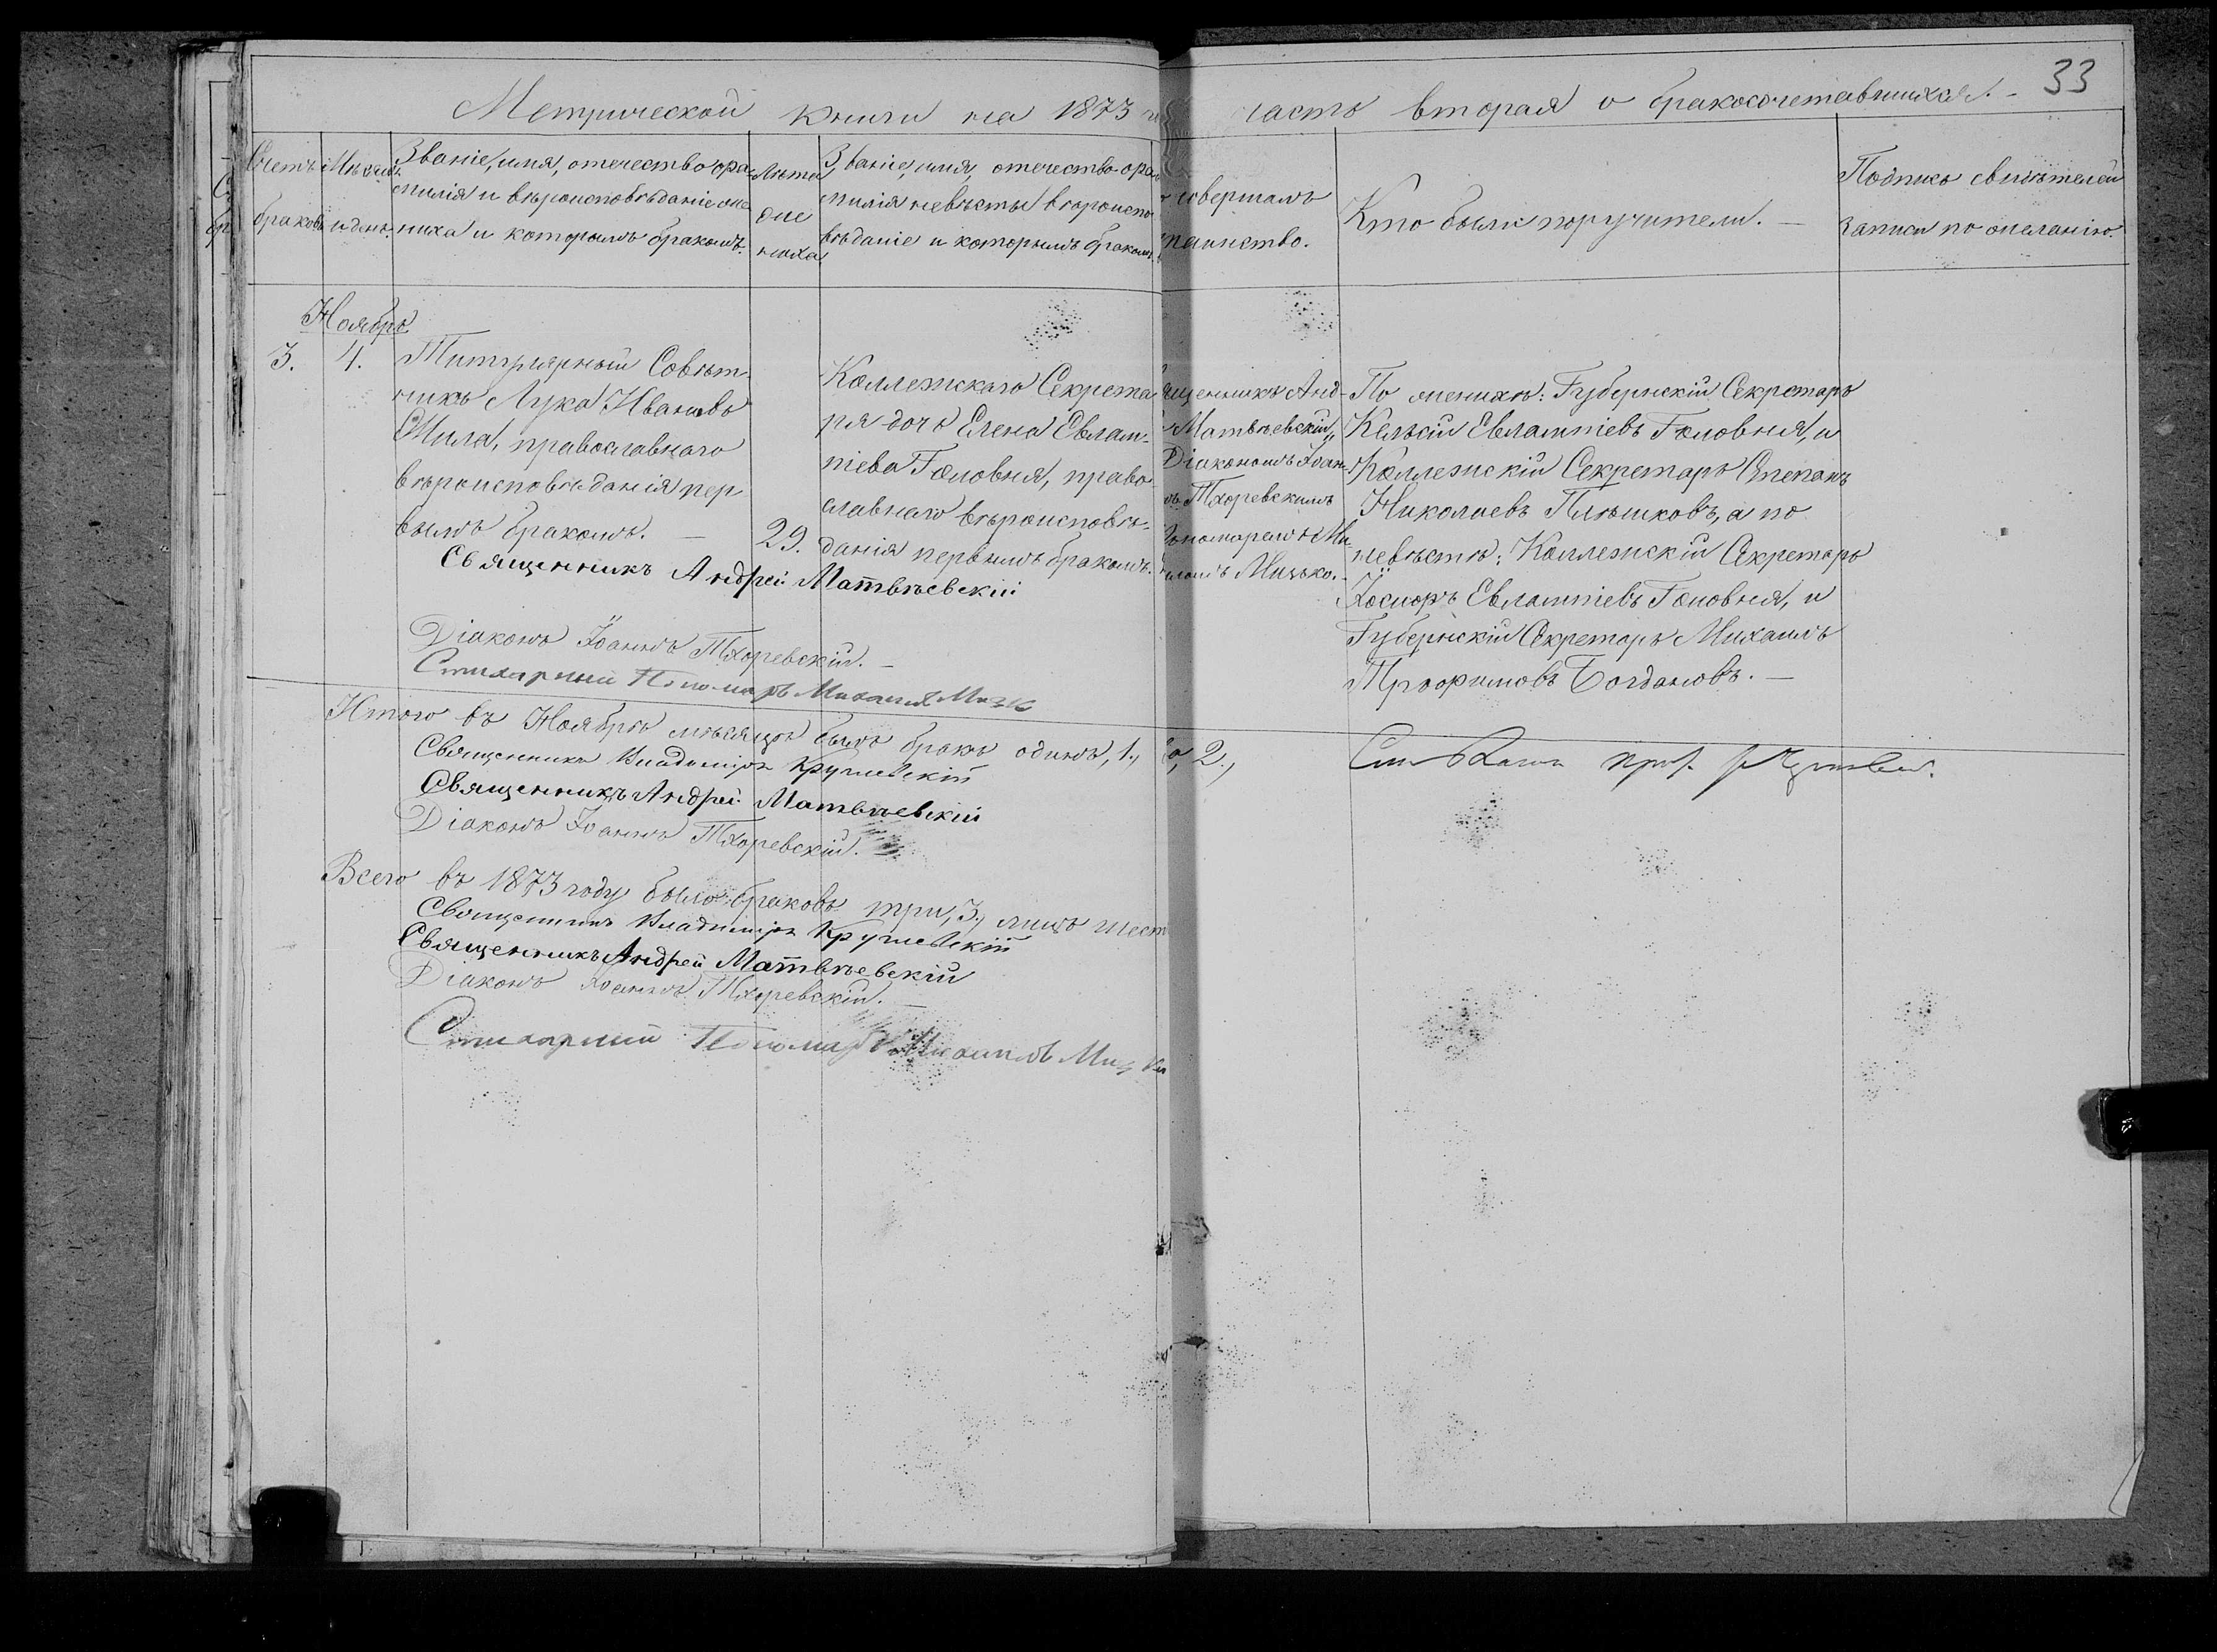 Метрической книги на 1873 г
часть вторая о бракосочетавшихся.
33
Счетъ
браковъ
Мѣсяцъ
и день.
Званіе, имя, отечество фа-
милія и вѣроисповѣданіе же-
ниха и которымъ бракомъ.
Лѣта
же
ниха
Званіе, имя, отечество фа
милія невѣсты вѣроиспо
вѣданіе и которымъ бракомъ.
совершалъ
таинство.
Кто были поручители. —
Подпись свидѣтелей
записи по желанію.
Ноябрь
3.
4.
Титулярный Совѣт-
никъ Лука Ивановъ
Жила, православнаго
вѣроисповѣданія пер
вымъ бракомъ. —
29.
Коллежскаго Секрета
ря дочь Елена Евлам-
піева Головня, право-
славнаго вѣроисповѣ-
данія первымъ бракомъ.
щенникъ Анд-
Матвѣевскій,
Діакономъ Іоан-
Тхоревскимъ
Пономаремъ Ми-
Мизько.
По женихѣ: Губернскій Секретарь
Евлампіевъ Головня, и
Коллежскій Секретарь Степанъ
Николаевъ Плѣшковъ, а по
невѣстѣ: Коллежскій Секретарь
Евлампіевъ Головня, и
Губернскій Секретарь Михаилъ
Трофимовъ Богдановъ. —
Священникъ Андрей Матвѣевскій
Діаконъ Іоаннъ Тхоревскій. —
Стихарный Пономарь Михаилъ
Итого въ Ноябрѣ мѣсяцѣ былъ бракъ одинъ, 1.,
2.,
Священникъ Владиміръ Крушевскій
Священникъ Андрей Матвѣевскій
Діаконъ Іоаннъ Тхоревскій. —
Всего въ 1873 году было браковъ три, 3., лицъ шест
Священникъ Владиміръ Крушевскій
Священникъ Андрей Матвѣевскій
Діаконъ Іоаннъ Тхоревскій. —
Стихарный Пономарь Михаилъ